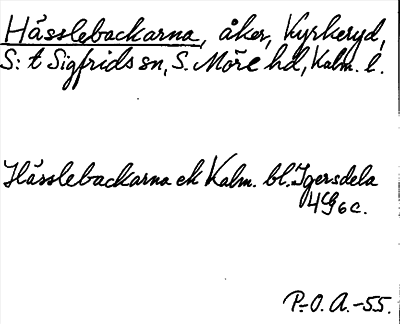 Hässlebackarna, åker, Kyrkeryd,
S:t Sigfrids sn, S. Möre hd, Kalm. l.
Hässlebackarna ek Kalm. bl. Igersdela
4G6c.
P.-O. A.-55.